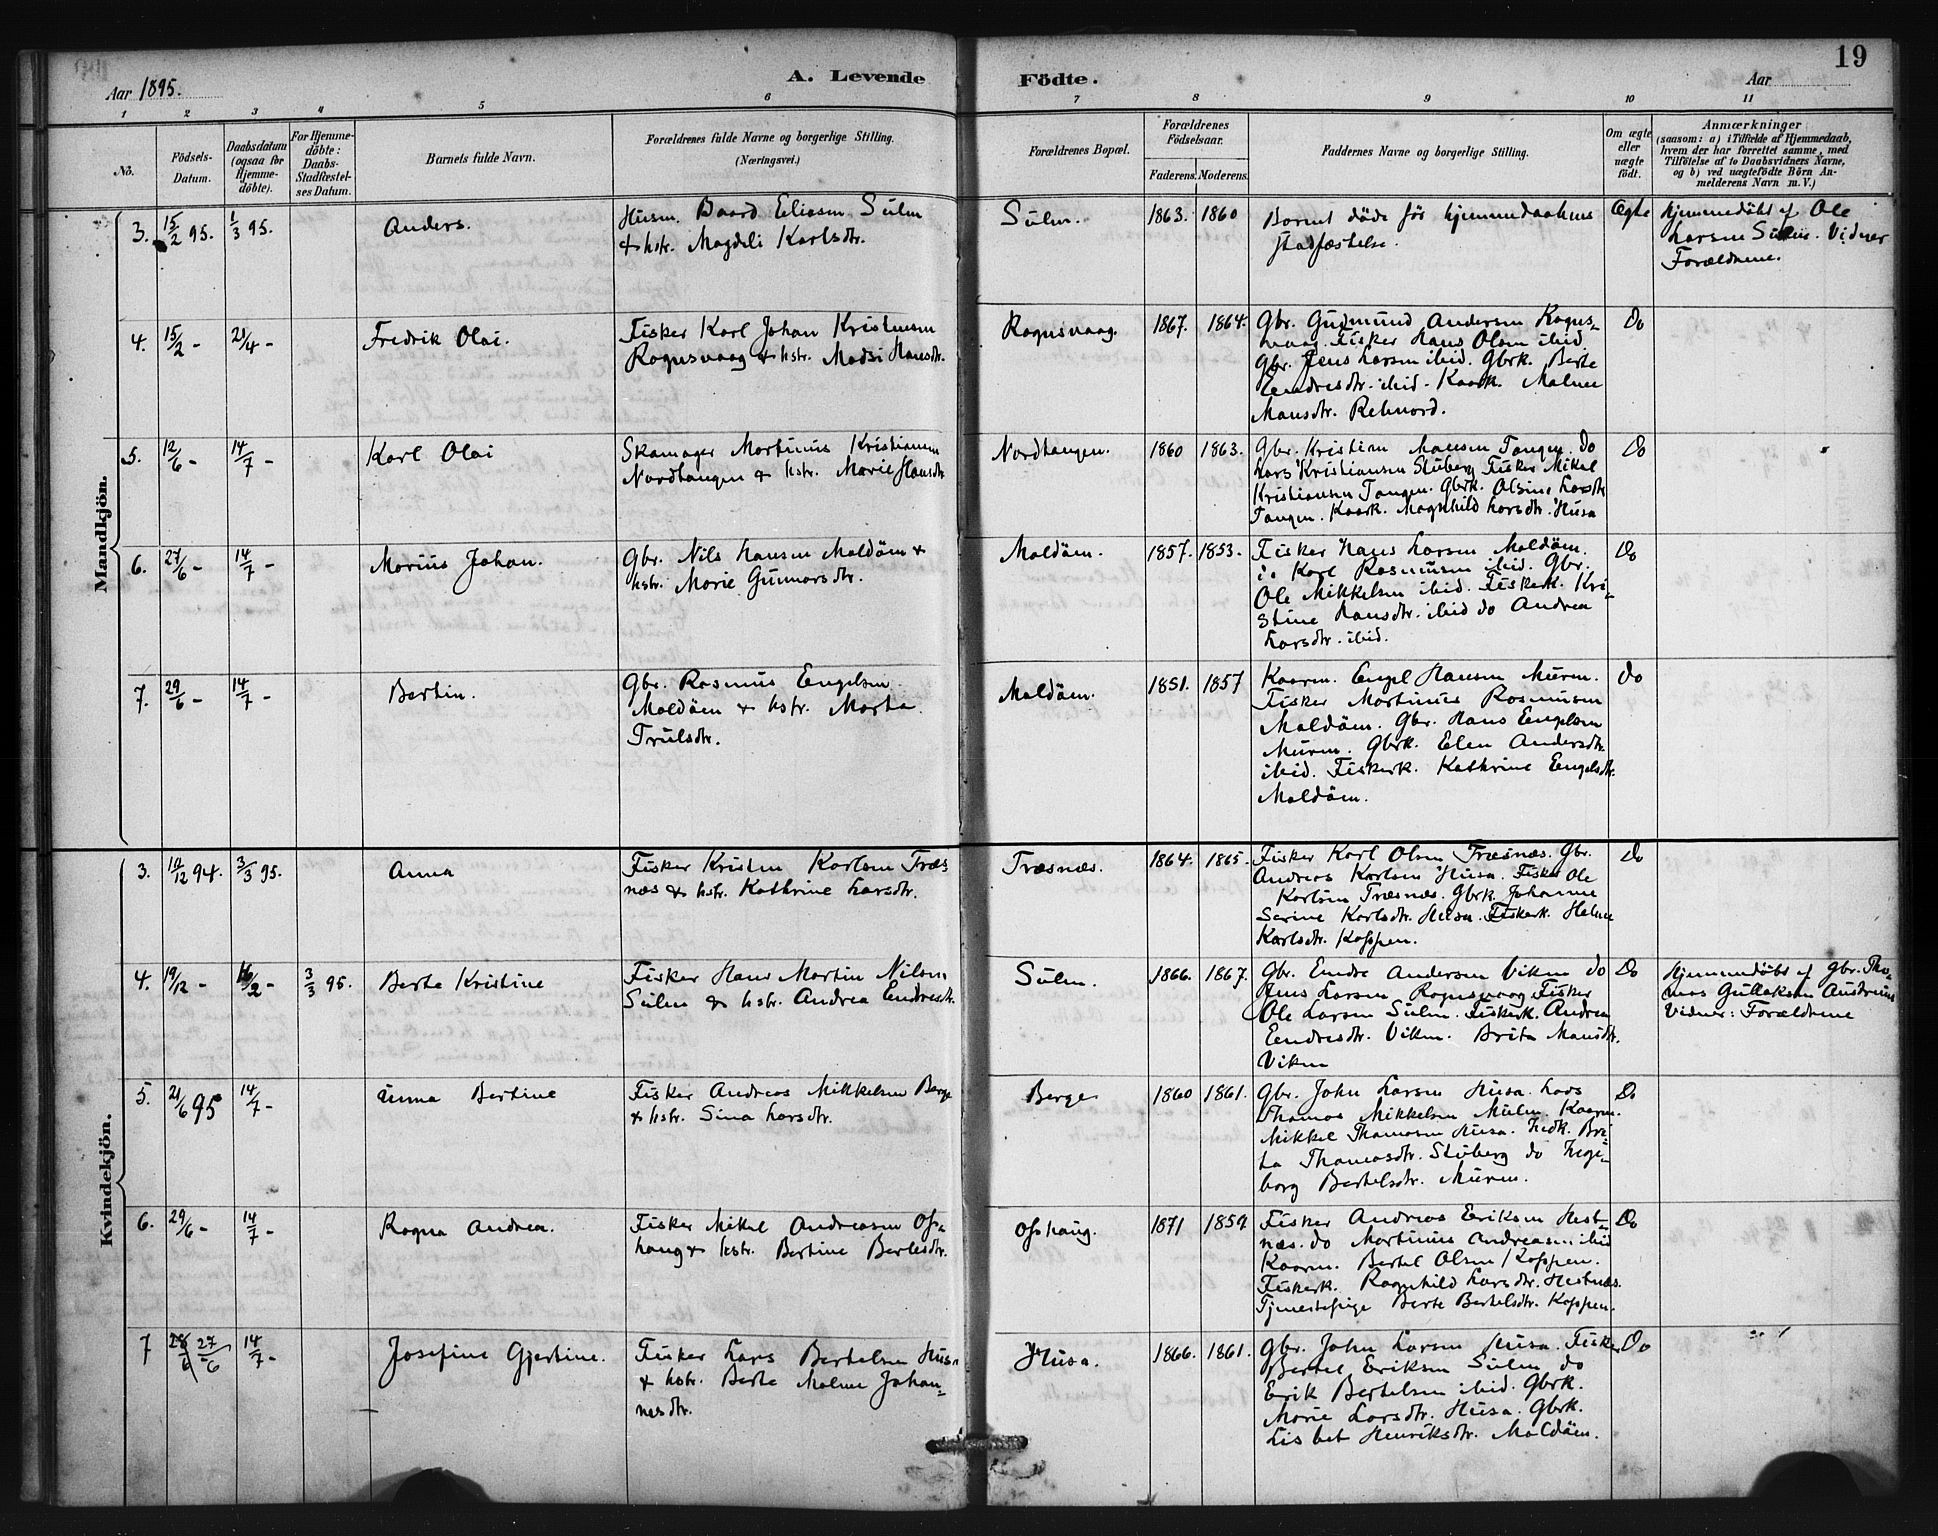 19
Aar 1895.
A. Levende Födte.
Aar
1 2 3 4 5 6 7 8 9 10 11
No.
Födsels-Datum.
Daabsdatum (ogsaa for Hjemmedöbte).
For Hjemmedöbte: Daabs-Stadfæstelses Datum.
Barnets fulde Navn.
Forældrenes fulde Navne og borgerlige Stilling.
(Næringsvei.)
Forældrenes Bopæl.
Forældrenes Födselsaar.
Faderens. Moderens.
Faddernes Navne og borgerlige Stilling.
Om ægte eller uægte födt.
Anmærkninger
(saasom: a) i Tilfælde af Hjemmedaab, hvem der har forrettet samme, med Tilföielse af to Daabsvidners Navne, og b) ved uægtefödte Börn Anmelderens Navn m. V.)
Mandkjön.
3. 15/2 95. 1/3 95. Anders.
Husm. Baard Eliasen Sulen
& hstr. Magdeli Karlsdtr.
Sulen. 1863. 1860
Barnet döde för hjemmedaabens
stadfæstelse.
Ægte
Hjemmedöbt af Ole
Larsen Sulen. Vidner
Forældrene.
4. 15/2 - 21/4 - Fredrik Olai.
Fisker Karl Johan Kristensen
Rognsvaag & hstr. Madsi Hansdtr.
Rognsvaag. 1867. 1864.
Gbr. Gudmund Andersen Rogns-
vaag. Fisker Hans Olsen ibid.
Gbr. Jens Larsen ibid. Gbrk. Berte
Endresdtr. ibid. Kaark. Malene
Mansdtr. Rebnord.
Do
5. 12/6 - 14/7 - Karl Olai
Skomager Martinus Kristiansen
Nordtangen & hstr. Marie Hansdtr
Nordtangen. 1860 1863.
Gbr. Kristian Hansen Tangen. Do
Lars Kristiansen Stuberg Fisker Mikal
Kristiansen Tangen. Gbrk. Olsine Larsdtr
Tangen. Kaark. Magnhild Larsdtr. Husa
Do
6. 27/6 - 14/7 - Marius Johan.
Gbr. Nils Hansen Maldöen &
hstr. Marie Gunnarsdtr.
Maldöen. 1857. 1853.
Fisker Hans Larsen Maldöen.
Karl Rasmusen ibid. Gbr.
Ole Mikkelsen ibid. Fiskerk. Kri-
stine Hansdtr. ibid do Andrea
Larsdtr. ibid.
Do
7. 29/6 - 14/7 - Bertin.
Gbr. Rasmus Engelsen
Maldöen & hstr. Marta
Trulsdtr.
Maldöen. 1851. 1857
Kaarm. Engel Hansen Muren.
Fisker Martinus Rasmusen
Maldöen. Gbr. Hans Engelsen
Muren. Gbrk. Elen Andersdtr.
ibid. Fiskerk. Kathrine Engelsdtr.
Maldöen.
do
Kvindekjön.
3. 12 94. 3/3 95. Anna
Fisker Kristen Karlsen Træs
næs & hstr. Kathrine Larsdtr.
Træsnæs. 1864. 1865.
Fisker Karl Olsen Træsnæs. Gbr.
Andreas Karlsen Husa. Fisker Ole
Karlsen Træsnæs. Gbrk. Johanne
Serine Karlsdtr. Husa. Fiskerk. Helene
Karlsdtr. Koppen.
Do
4. 19/12 - /2 - 3/3 95. Berte Kristine
Fisker Hans Martin Nilsen
Sulen & hstr. Andrea Endresdtr.
Sulen. 1866. 1867.
Gbr. Endre Andersen Viken do
Jens Larsen Rognsvaag Fisker
Ole Larsen Sulen. Fiskerk. Andrea
Endresdtr. Viken. Brita Mansdtr.
Viken
Do
Hjemmedöbt af Gbr. Tho-
mas Gullaksen
Vidner: Forældrene
5. 21/6 95 14/7 - Anna Bertine
Fisker Andreas Mikkelsen Berge
& hstr. Sina Larsdtr.
Berge 1860 1861.
Gbr. John Larsen Husa. Lods
Thomas Mikkelsen Mulen. Kaarm.
Mikkel Thomasen Husa. Bri-
ta Thomasdtr. Stuberg do Inge-
borg Bertelsdtr. Muren.
Do
6. 29/6 - 14/7 - Ragna Andrea.
Fisker Mikal Andreasen Ops-
haug & hstr. Bertine Bertelsdtr.
Opshaug. 1871 1859
Fisker Andreas Eriksen Hest-
næs. do Martinus Andreasen ibid
Kaarm. Bertel Olsen Koppen.
Fiskerk. Ragnhild Larsdtr. Hestnæs.
Tjenestepige Berte Bertelsdtr. Koppen.
Do
7 28/6 27/6 14/7 - Josefine Gjertine.
Fisker Lars Bertelsen Husa
& hstr. Berte Malene Johan-
nesdtr.
Husa. 1866. 1861.
Gbr. John Larsen Husa. Fisker
Bertel Eriksen Sulen do
Erik Bertelsen ibid. Gbrk.
Marie Larsdtr. Husa. Gbrk.
Lisbet Henriksdtr. Maldöen.
Do